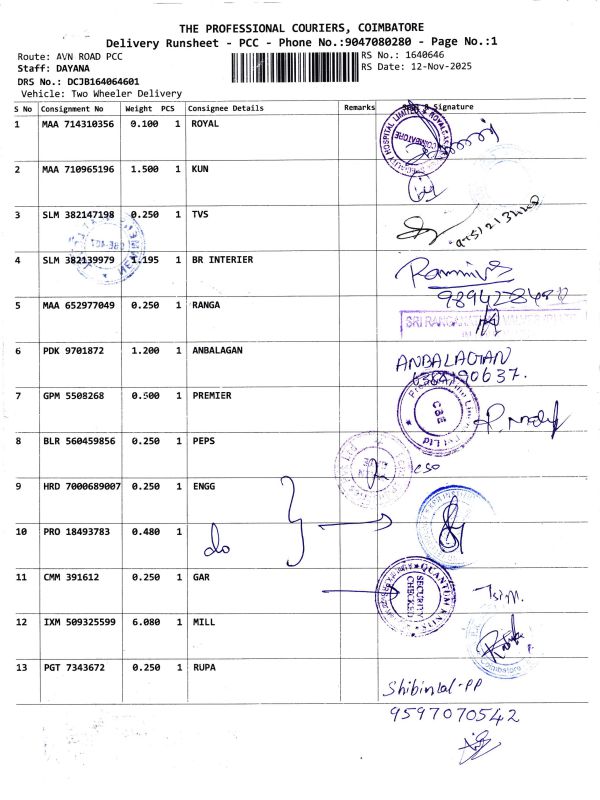 THE PROFESSIONAL COURIERS, COIMBATORE
Delivery Runsheet - PCC - Phone No.:9047080280 - Page No.:1
Route: AVN ROAD PCC
Staff: DAYANA
DRS No.: DCJB164064601
Vehicle: Two Wheeler Delivery
RS No.: 1640646
RS Date: 12-Nov-2025
S No Consignment No Weight PCS Consignee Details Remarks & Signature
1 MAA 714310356 0.100 1 ROYAL
2 MAA 710965196 1.500 1 KUN
3 SLM 382147198 0.250 1 TVS
4 SLM 382139979 1.195 1 BR INTERIER
5 MAA 652977049 0.250 1 RANGA
6 PDK 9701872 1.200 1 ANBALAGAN
ANBALAGAN
7 GPM 5508268 0.500 1 PREMIER
C&E
8 BLR 560459856 0.250 1 PEPS
CSO
9 HRD 7000689007 0.250 1 ENGG
10 PRO 18493783 0.480 1 do
11 CMM 391612 0.250 1 GAR
SECURITY
CHECKED
12 IXM 509325599 6.080 1 MILL
Coimbatore
13 PGT 7343672 0.250 1 RUPA
Shibinlal-PP
9597070542